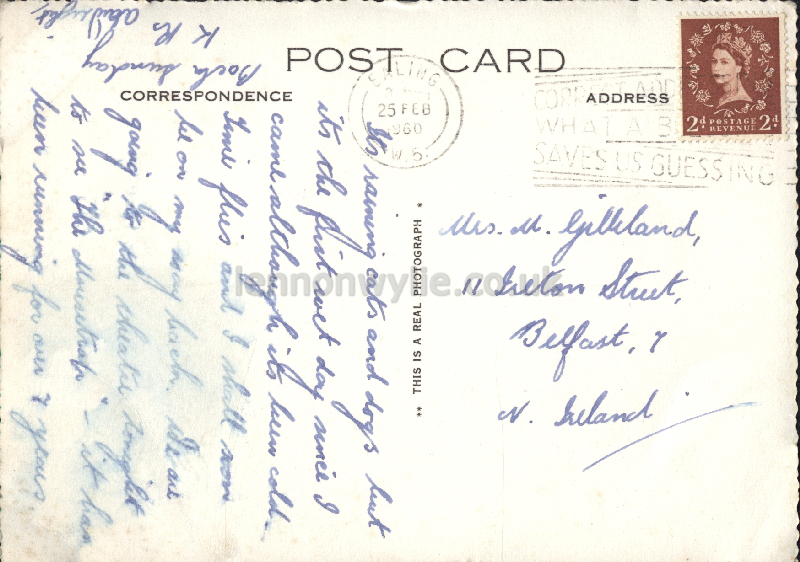 POST CARD
CORRESPONDENCE
ADDRESS
EALING
25 FEB
1960
W.5.
WHAT A
SAVES US GUESSING
2d POSTAGE REVENUE 2d
Its raining cats and dogs but
its the first wet day since I
came although its been cold.
Time flies and I shall soon
be on my way back. We are
going to the theatre tonight
to see "The Mousetrap" – it has
been running for over 7 years.
Back Sunday
** THIS IS A REAL PHOTOGRAPH **
Mrs. M. Gilleland,
11 Ireton Street,
Belfast, 7
N. Ireland
lennonwylie.co.uk